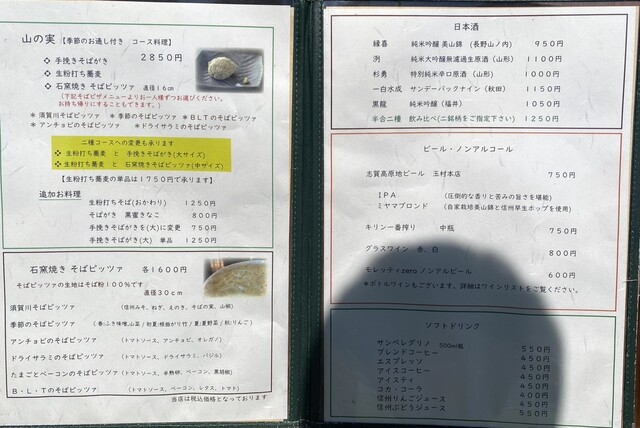 山の実 【季節のお通し付き コース料理】
2850円
❖ 手挽きそばがき
❖ 生粉打ち蕎麦
❖ 石窯焼き そばピッツァ 直径16cm
(下記そばピザメニューよりお一人様ずつお選びください。
お持ち帰りにすることもできます。)
＊ 須賀川そばピッツァ ＊ 季節のそばピッツァ ＊ＢＬＴのそばピッツァ
＊ アンチョビのそばピッツァ ＊ドライサラミのそばピッツァ
二種コースへの変更も承ります
❖ 生粉打ち蕎麦 と 手挽きそばがき(大サイズ)
❖ 生粉打ち蕎麦 と 石窯焼きそばピッツァ(中サイズ)
【生粉打ち蕎麦の単品は1750円で承ります】
追加お料理
生粉打ちそば(おかわり) 1250円
そばがき 黒蜜きなこ 800円
手挽きそばがきを(大)に変更 750円
手挽きそばがき(大) 単品 1250円
石窯焼き そばピッツァ 各1600円
そばピッツァの生地はそば粉100%です
直径30cm
須賀川そばピッツァ (信州みそ、ねぎ、えのき、そばの実、山椒)
季節のそばピッツァ
アンチョビのそばピッツァ (トマトソース、アンチョビ、オレガノ)
ドライサラミのそばピッツァ (トマトソース、ドライサラミ、バジル)
たまごとベーコンのそばピッツァ (トマトソース、半熟卵、ベーコン、黒胡椒)
Ｂ・Ｌ・Ｔのそばピッツァ (トマトソース、ベーコン、レタス、トマト)
当店は税込価格となっております
日本酒
縁喜 純米吟醸 美山錦 (長野山ノ内) 950円
洌 純米大吟醸無濾過生原酒(山形) 1100円
杉勇 特別純米辛口原酒(山形) 1000円
一白水成 サンデーバックナイン(秋田) 1150円
黒龍 純米吟醸(福井) 1050円
半合二種 飲み比べ(二銘柄をご指定下さい) 1250円
ビール・ノンアルコール
志賀高原地ビール 玉村本店 750円
ＩＰＡ (圧倒的な香りと苦みの旨さを堪能)
ミヤマブロンド (自家栽培美山錦と信州早生ホップを使用)
キリン一番搾り 中瓶 750円
グラスワイン 赤、白 800円
モレッティzero ノンアルビール 600円
＊ボトルワインもございます。詳細はワインリストをご覧ください。
ソフトドリンク
サンペレグリノ 500ml瓶 550円
ブレンドコーヒー 450円
エスプレッソ 450円
アイスコーヒー 450円
アイスティ 450円
コカ・コーラ 400円
信州りんごジュース 450円
信州ぶどうジュース 550円